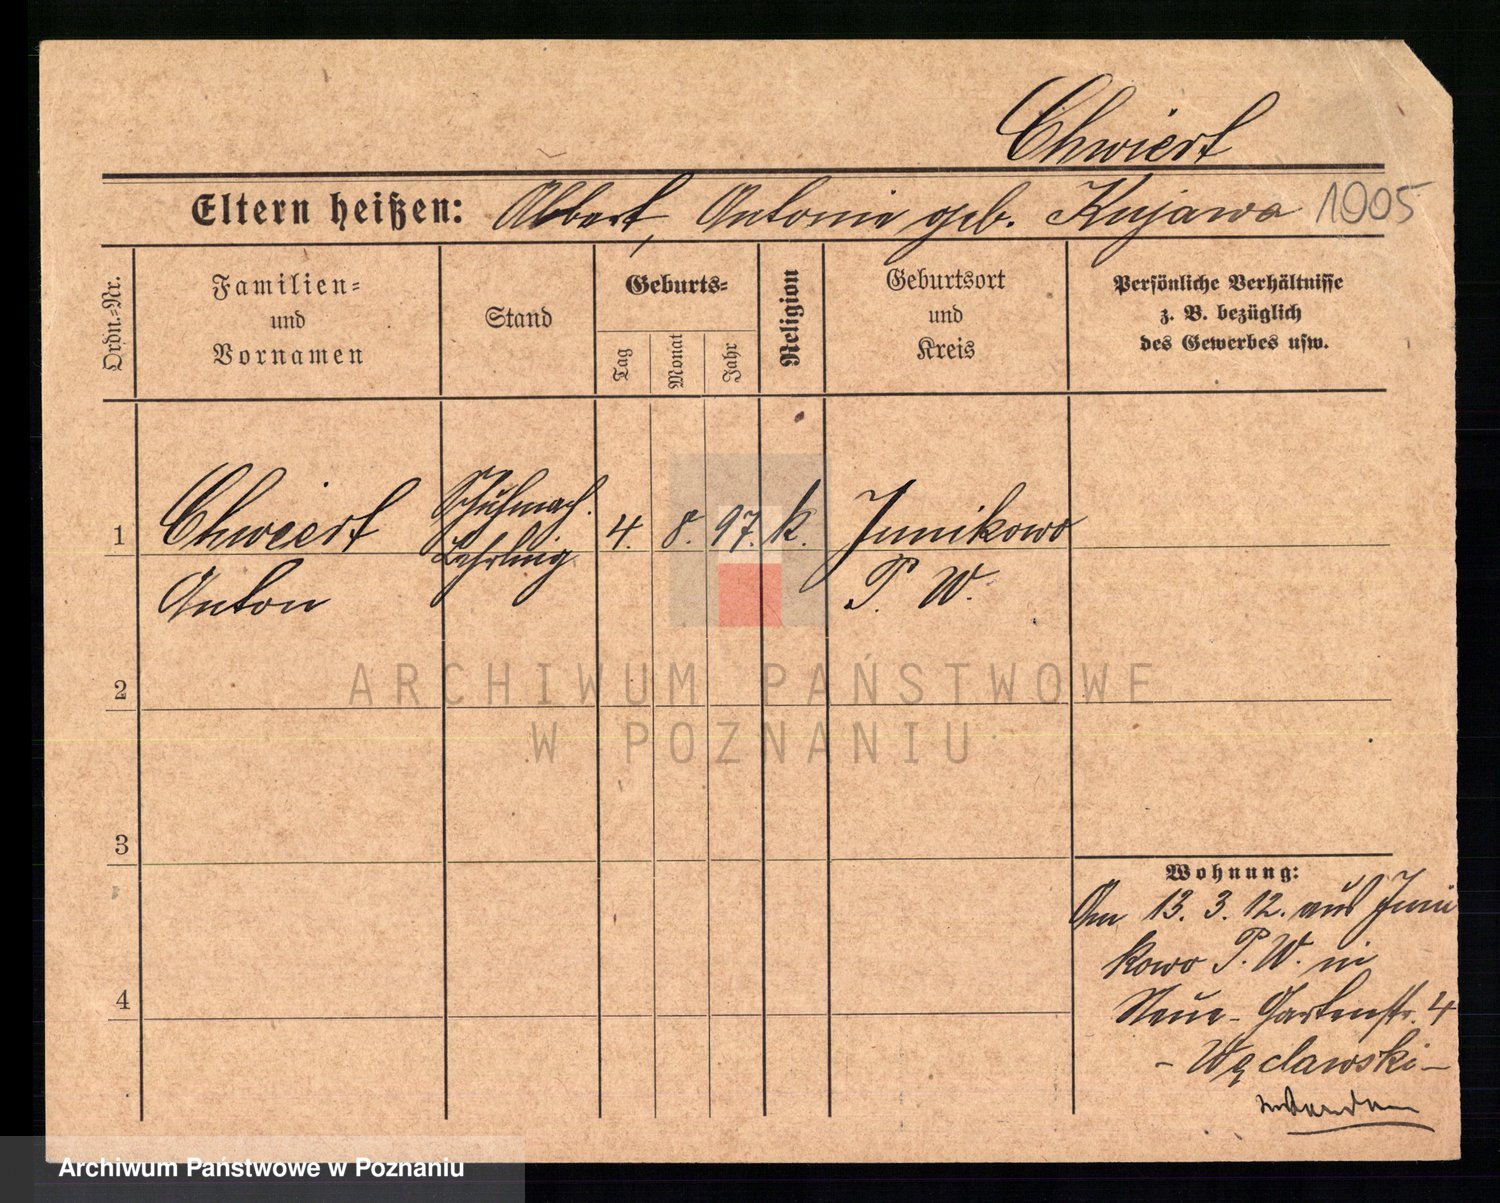 Chwiert
Eltern heißen: Albert, Antonie geb. Kujawa 1005
Ordn.-Nr.
Familien-
und
Vornamen
Stand
Geburts-
Tag Monat Jahr
Religion
Geburtsort
und
Kreis
Persönliche Verhältnisse
z. B. bezüglich
des Gewerbes usw.
1 Chwiert Schuhmach. 4. 8. 97. k. Junikowo
Lehrling
Anton P. W.
2
3
4
Wohnung:
Am 13. 3. 12. aus Juni
kowo P. W. in
Neue-Gartenstr. 4
- Węclawski -
ARCHIWUM PAŃSTWOWE
W POZNANIU
Archiwum Państwowe w Poznaniu